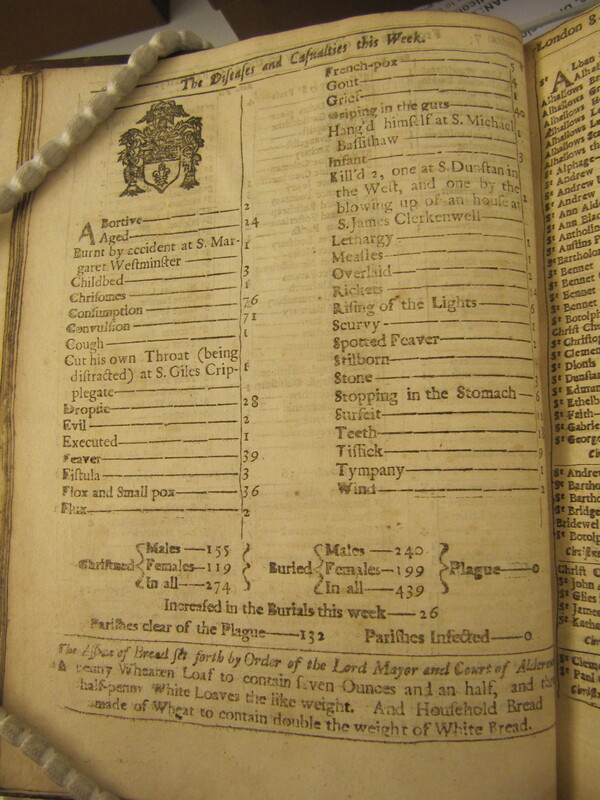 The Diseases and Casualties this Week.
ABortive 2
Aged 24
Burnt by accident at S. Mar-
garet Westminster 1
Childbed 3
Chrisomes 1
Consumption 76
Convulsion 71
Cough 1
Cut his own Throat (being
distracted) at S. Giles Crip-
plegate 1
Dropsie 28
Evil 2
Executed 1
Feaver 39
Fistula 3
Flox and Small pox 36
Flux 2
French-pox 5
Gout
Grief
Griping in the guts 40
Hang'd himself at S. Michael
Bassishaw 1
Infant 3
Kill'd 2, one at S. Dunstan in
the West, and one by the
blowing up of an house at
S. James Clerkenwell 2
Lethargy 1
Measles
Overlaid
Rickets
Rising of the Lights 6
Scurvy
Spotted Feaver
Stilborn
Stone 3
Stopping in the Stomach 6
Surfeit
Teeth
Tissick 9
Tympany 1
Wind 2
Christned
Males 155
Females 119
In all 274
Buried
Males 240
Females 199
In all 439
Plague 0
Increased in the Burials this week 26
Parishes clear of the Plague 132 Parishes Infected 0
The Assize of Bread set forth by Order of the Lord Mayor and Court of Aldermen
A penny Wheaten Loaf to contain Seven Ounces and an half, and three
half-penny White Loaves the like weight. And Household Bread
made of Wheat to contain double the weight of White Bread.
London 8
St ALban
Alhallows
Alhallows
Alhallows
Alhallows
St Alphage
St Andrew
St Andrew
St Ann
St Ann
St Antholin
St Austins
St Bartholo
St Bennet
St Bennet
St Bennet
St Bennet
St Botolph
Christ
St Christop
St Clemen
St Dionis
St Dunstan
St Edmun
St Ethelb
St Faith
St Gabrie
St George
St Andrew
St Bartho
St Bartho
St Bridge
Bridewel
St Botol
Christ
St John
St Giles
St James
St Kathe
St Cleme
St Paul